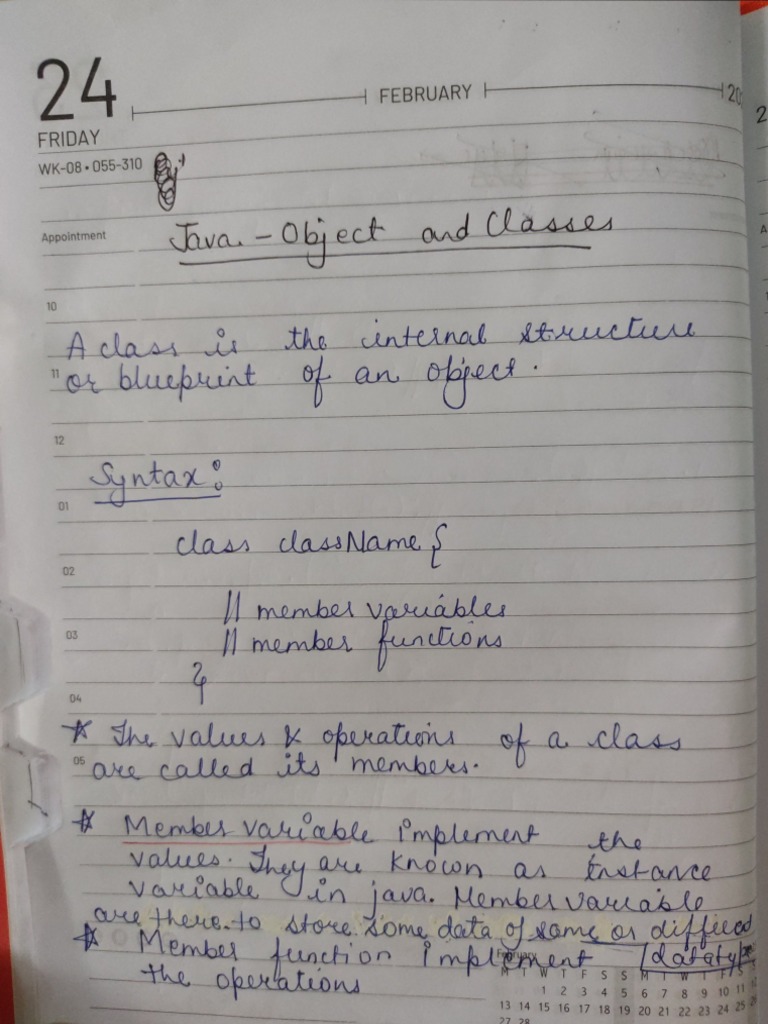 24
FEBRUARY
20
FRIDAY
WK-08 • 055-310
Appointment
Java. - Object and Classes
10
A class is the internal structure
11 or blueprint of an object.
12
Syntax:
01
class classNameE {
02
// member variables
03 // member functions
}
04
* The values & operations of a class
05 are called its members.
* Member variable implement the
values. They are known as Instance
variable in java. Member variable
are there to store some data of same or diffied
datatype
* Member function implement
the operations
February
M T W T F S S M T W T F S
1 2 3 4 5 6 7 8 9 10 11
13 14 15 16 17 18 19 20 21 22 23 24 25
27 28